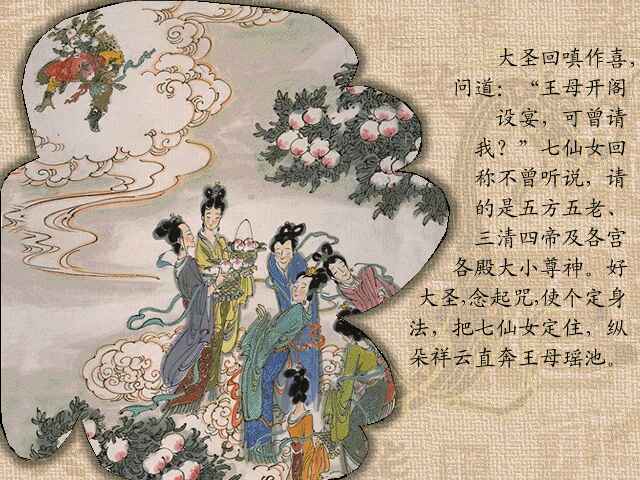 大圣回嗔作喜，
问道：“王母开阁
设宴，可曾请
我？”七仙女回
称不曾听说，请
的是五方五老、
三清四帝及各宫
各殿大小尊神。好
大圣，念起咒，使个定身
法，把七仙女定住，纵
朵祥云直奔王母瑶池。